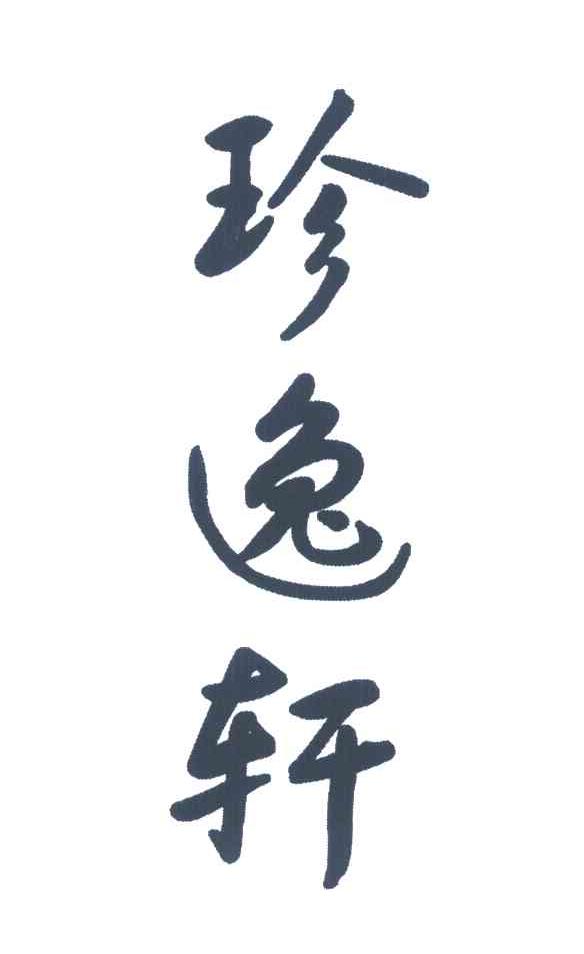 珍逸轩